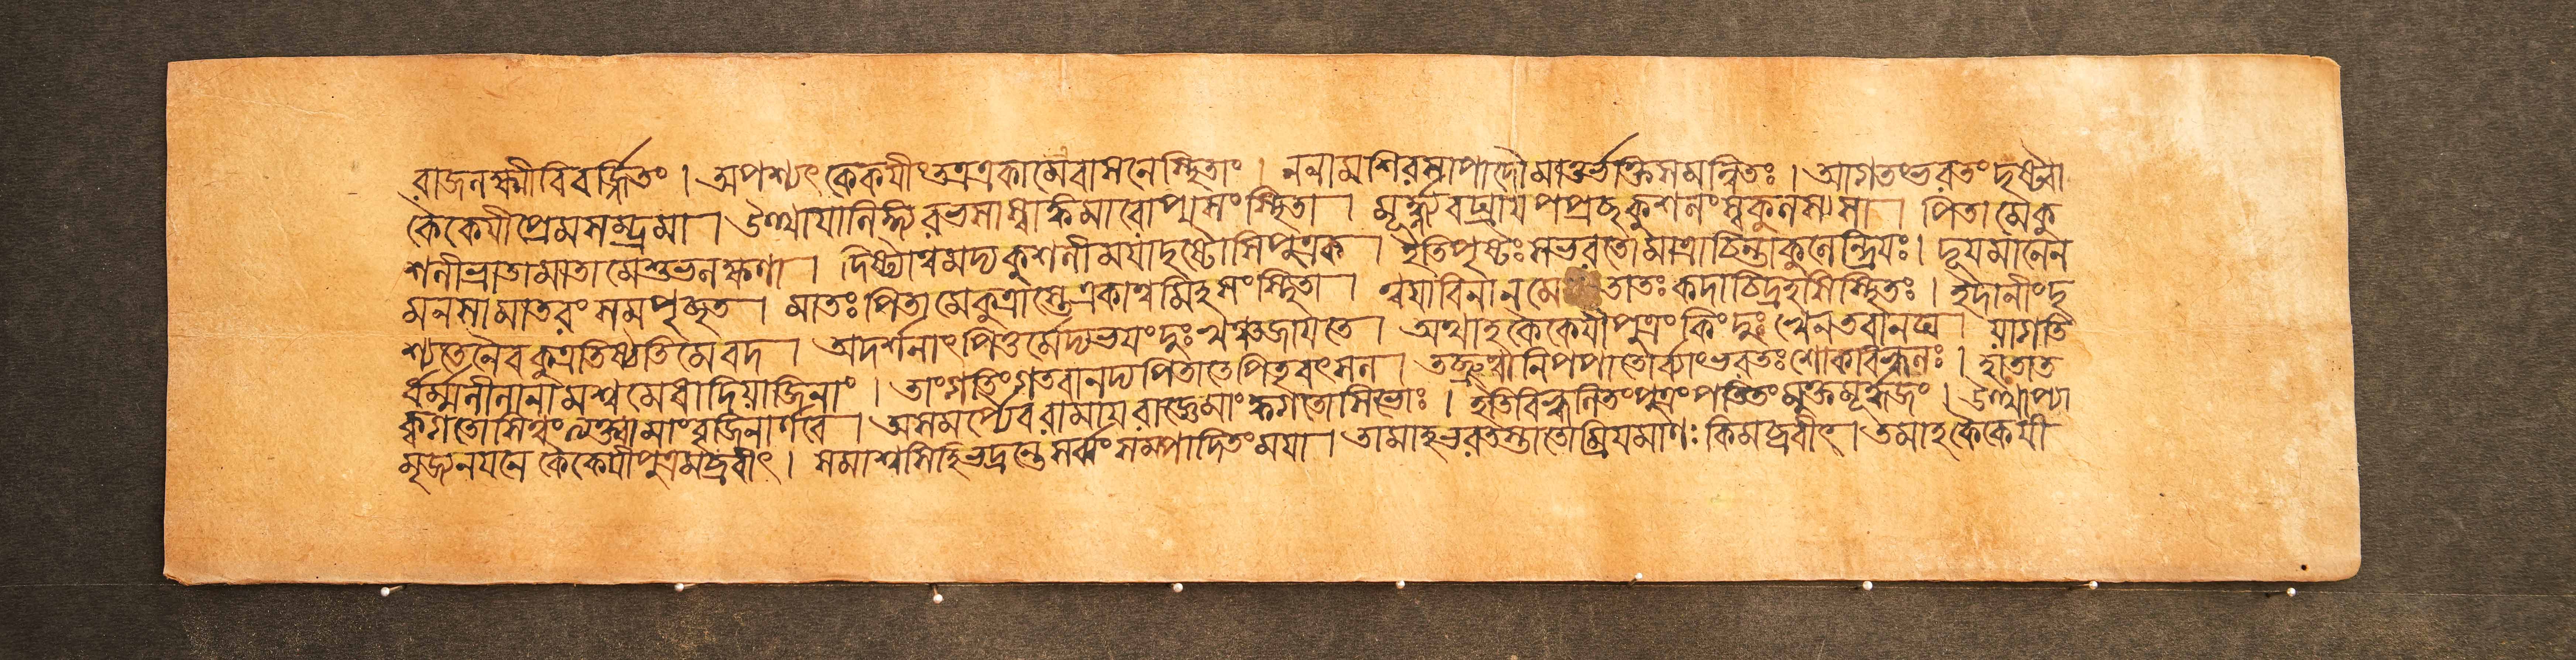 ৰাজলক্ষ্মীবিবৰ্জ্জিতং । অপশ্যৎ কেকয়ীংতত্ৰএকামেবাসনেস্থিতাং । ননামশিৰসাপাদৌমাতুৰ্ভক্তিসমন্বিতঃ । আগতংভৰতং দৃষ্ট্বা
কৈকেয়ীপ্ৰেমসম্ভ্ৰমা । উত্থায়ালিঙ্গ্যৰভসাস্বাঙ্কমাৰোপ্যসংস্থিতা । মূৰ্দ্ধ্ন্যবঘ্ৰায়পপ্ৰচ্ছকুশলংস্বকুলস্যসা । পিতামেকু
শলীভ্ৰাতামাতামেশুভলক্ষণা । দিষ্ট্যাত্বমদ্যকুশলীময়াদৃষ্টোসিপুত্ৰক । ইতিপৃষ্টঃসভৰতোমাত্ৰাচিন্তাকুলেন্দ্ৰিয়ঃ । দূয়মানেন
মনসামাতৰংসমপৃচ্ছত । মাতঃপিতামেকুত্ৰাস্তেএকাত্বমিহসংস্থিতা । ত্বয়াবিনানমে তাতঃকদাচিদ্ৰহসিস্থিতঃ । ইদানীংদৃ
শ্যতেনৈবকুত্ৰতিষ্ঠতিমেবদ । অদৰ্শনাৎপিতুৰ্মেদ্যভয়ংদুঃখঞ্চজায়তে । অথাহকৈকেয়ীপুত্ৰংকিংদুঃখেনতবানঘ । যাগতি
ৰ্ধৰ্ম্মশীলানামশ্বমেধাদিয়াজিনাং । তাংগতিংগতবানদ্যপিতাতেপিতৃবৎসল । তচ্ছ্ৰুত্বানিপপাতোৰ্ব্ব্যাংভৰতঃশোকবিহ্বলঃ । হাতাত
ক্বগতোসিত্বংত্যক্ত্বামাংবৃজিনাৰ্ণবে । অসমৰ্প্যৈবৰামায়ৰাজ্ঞেমাংক্বগতোসিভোঃ । ইতিবিহ্বলিতংপুত্ৰংপতিতংমুক্তমূৰ্দ্ধজং । উত্থাপ্যা
মৃজ্যনয়নে কৈকেয়ীপুত্ৰমব্ৰবীৎ । সমাশ্বসিহিভদ্ৰন্তেসৰ্ব্বংসম্পাদিতংময়া । তামাহভৰতস্তাতোম্ৰিয়মাণঃকিমব্ৰবীৎ । তমাহকৈকেয়ী